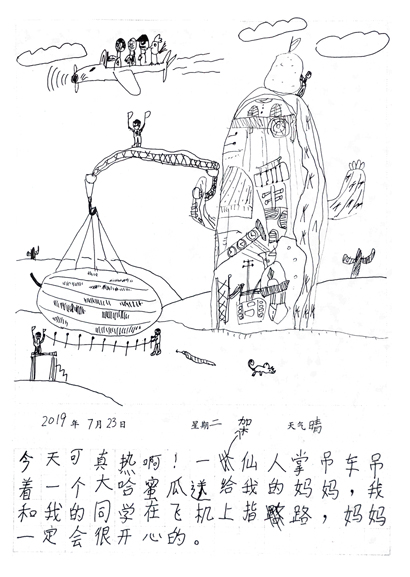 2019年7月23日 星期二 天气晴
今天可真热啊！一架仙人掌吊车吊
着一个大哈蜜瓜送给我的妈妈，我
和我的同学在飞机上指路，妈妈
一定会很开心的。